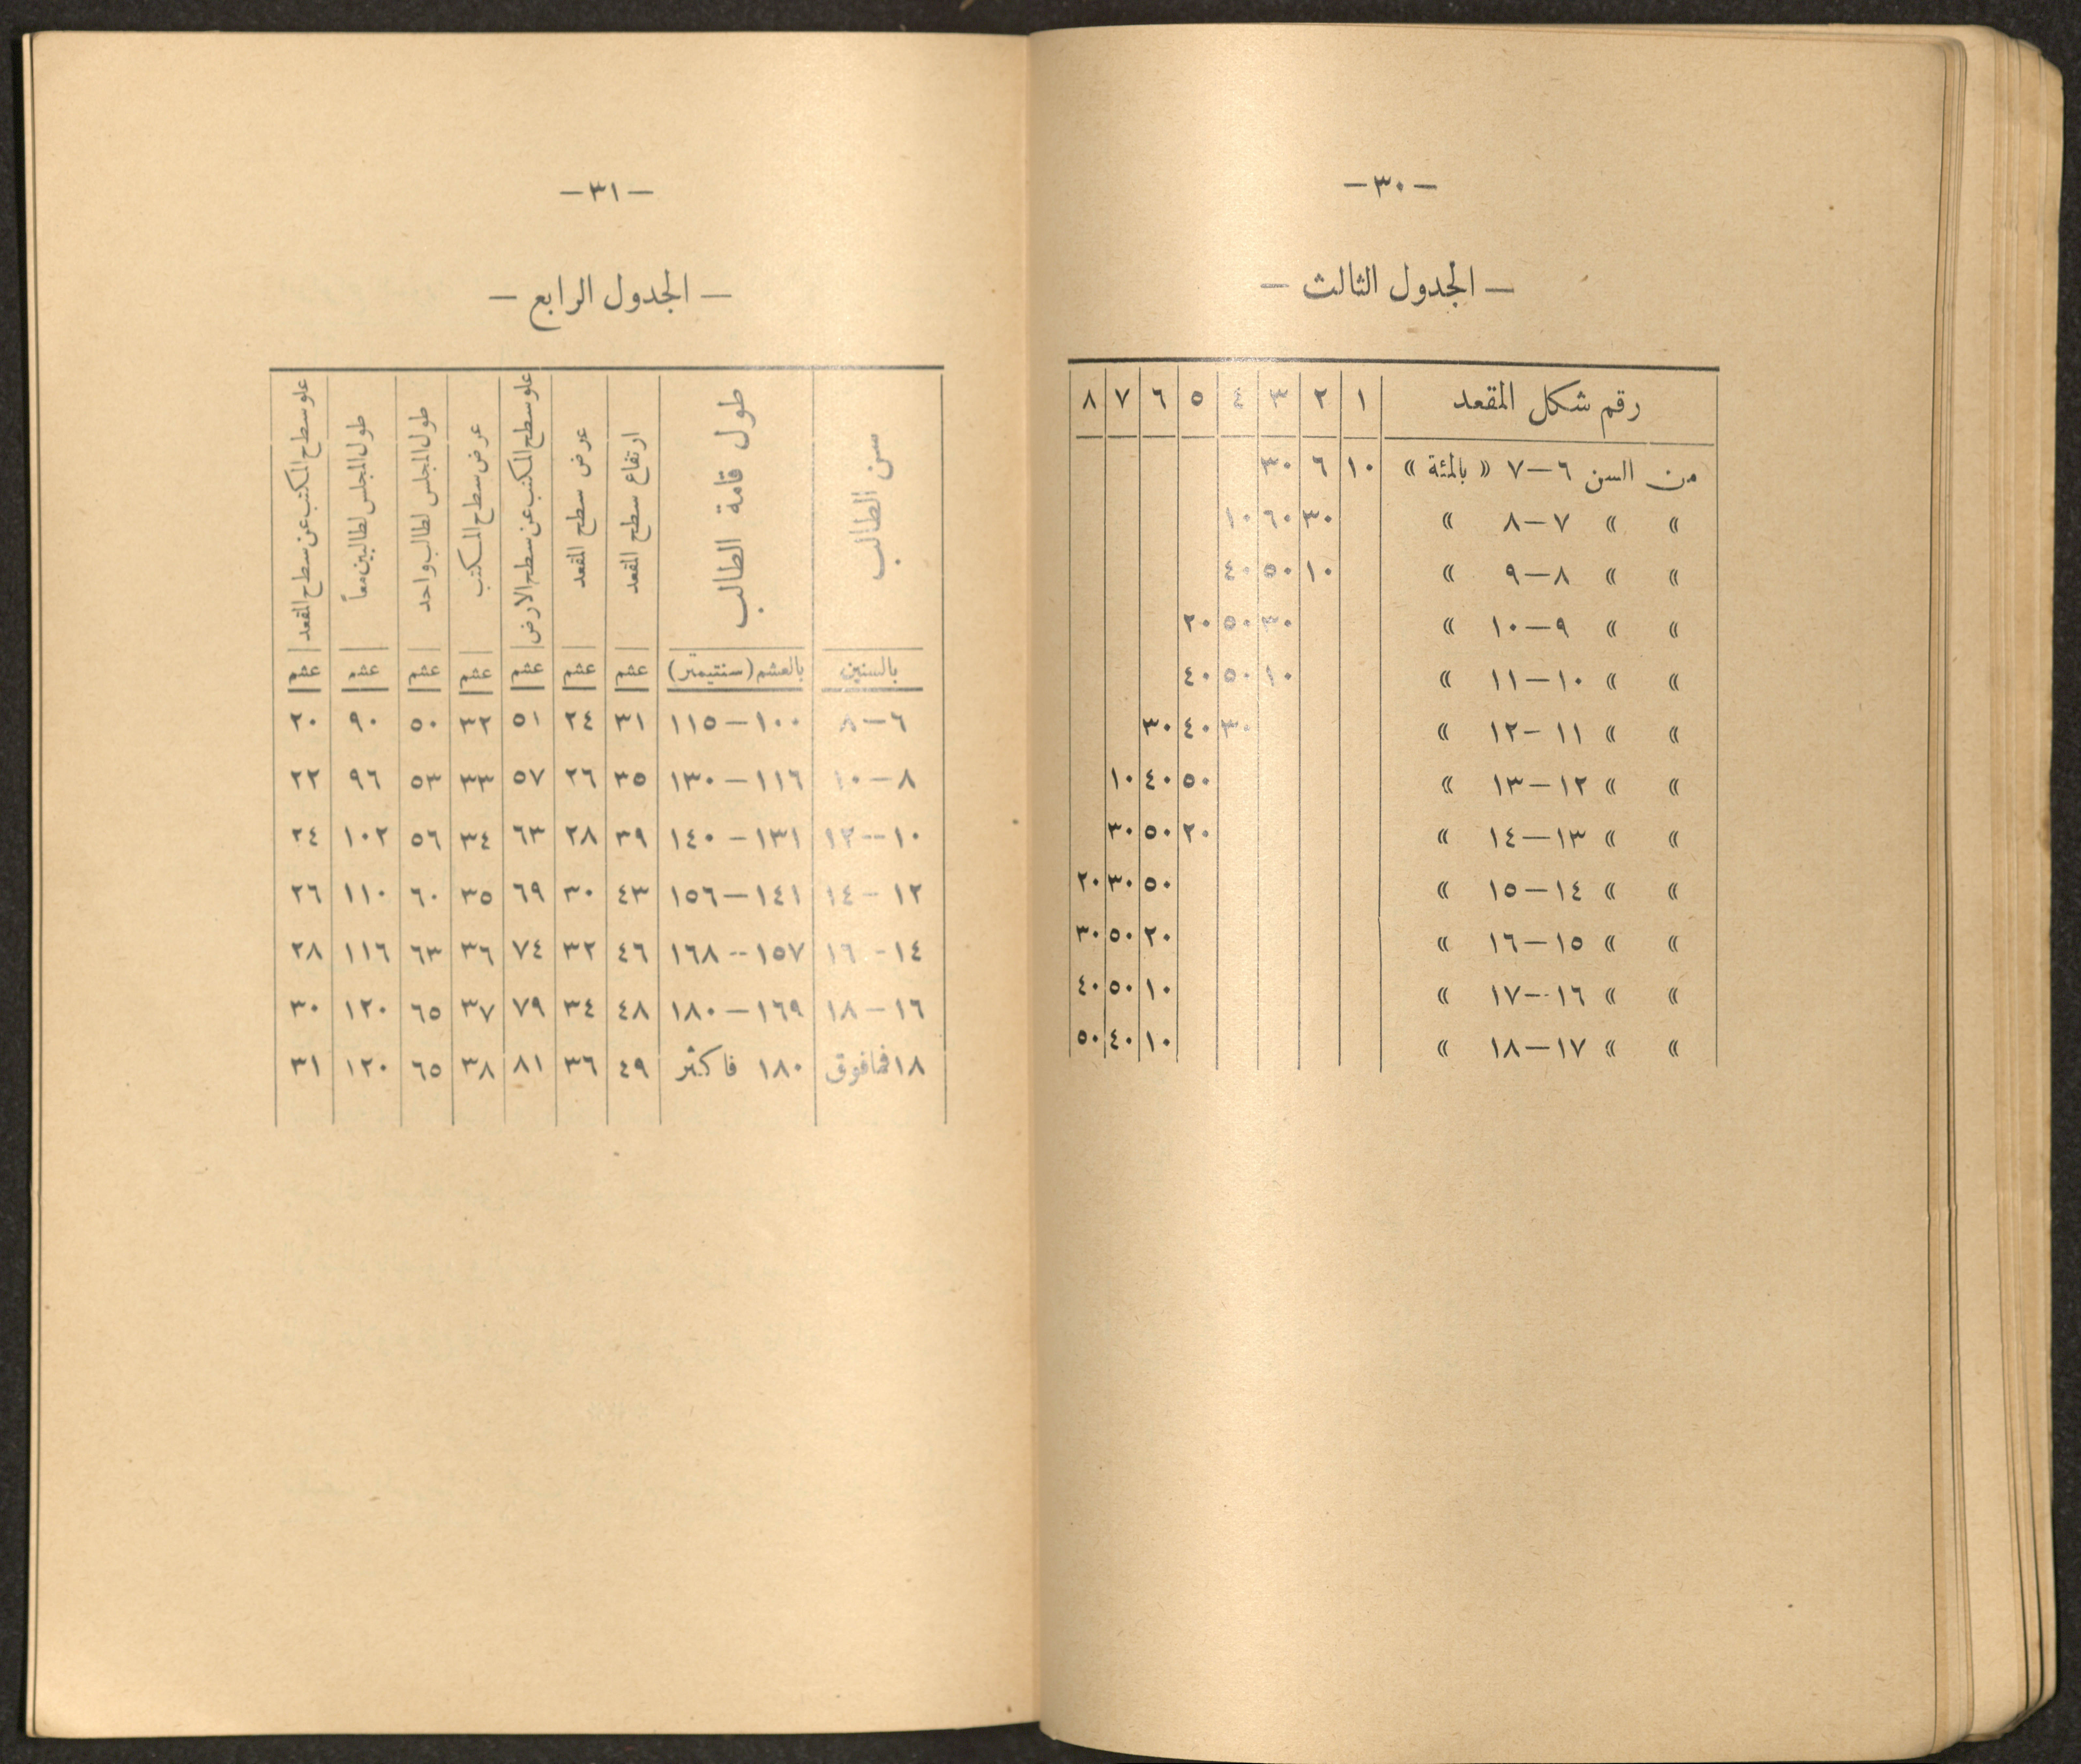 — ٣٠ —
— الجدول الثالث —
رقم شكل المقعد ١ ٢ ٣ ٤ ٥ ٦ ٧ ٨
من السن ٦—٧ « بالمئة » ١٠ ٦ ٣٠
» » ٧—٨ » ٣٠ ٦٠ ١٠
» » ٨—٩ » ١٠ ٥٠ ٤٠
» » ٩—١٠ » ٣٠ ٥٠ ٢٠
» » ١٠—١١ » ١٠ ٥٠ ٤٠
» » ١١—١٢ » ٣٠ ٤٠ ٣٠
» » ١٢—١٣ » ٥٠ ٤٠ ١٠
» » ١٣—١٤ » ٢٠ ٥٠ ٣٠
» » ١٤—١٥ » ٥٠ ٣٠ ٢٠
» » ١٥—١٦ » ٢٠ ٥٠ ٣٠
» » ١٦—١٧ » ١٠ ٥٠ ٤٠
» » ١٧—١٨ » ١٠ ٤٠ ٥٠
— ٣١ —
— الجدول الرابع —
سن الطالب
طول قامة الطالب
ارتفاع سطح المقعد
عرض سطح المقعد
علو سطح المكتب عن سطح الارض
عرض سطح المكتب
طول المجلس لطالب واحد
طول المجلس لطالبين معاً
علو سطح المكتب عن سطح المقعد
بالسنين بالعشم (سنتيمتر) عشم عشم عشم عشم عشم عشم عشم
٦—٨ ١٠٠—١١٥ ٣١ ٢٤ ٥١ ٣٢ ٥٠ ٩٠ ٢٠
٨—١٠ ١١٦—١٣٠ ٣٥ ٢٦ ٥٧ ٣٣ ٥٣ ٩٦ ٢٢
١٠—١٢ ١٣١—١٤٠ ٣٩ ٢٨ ٦٣ ٣٤ ٥٦ ١٠٢ ٢٤
١٢—١٤ ١٤١—١٥٦ ٤٣ ٣٠ ٦٩ ٣٥ ٦٠ ١١٠ ٢٦
١٤—١٦ ١٥٧—١٦٨ ٤٦ ٣٢ ٧٤ ٣٦ ٦٣ ١١٦ ٢٨
١٦—١٨ ١٦٩—١٨٠ ٤٨ ٣٤ ٧٩ ٣٧ ٦٥ ١٢٠ ٣٠
١٨ فمافوق ١٨٠ فاكثر ٤٩ ٣٦ ٨١ ٣٨ ٦٥ ١٢٠ ٣١